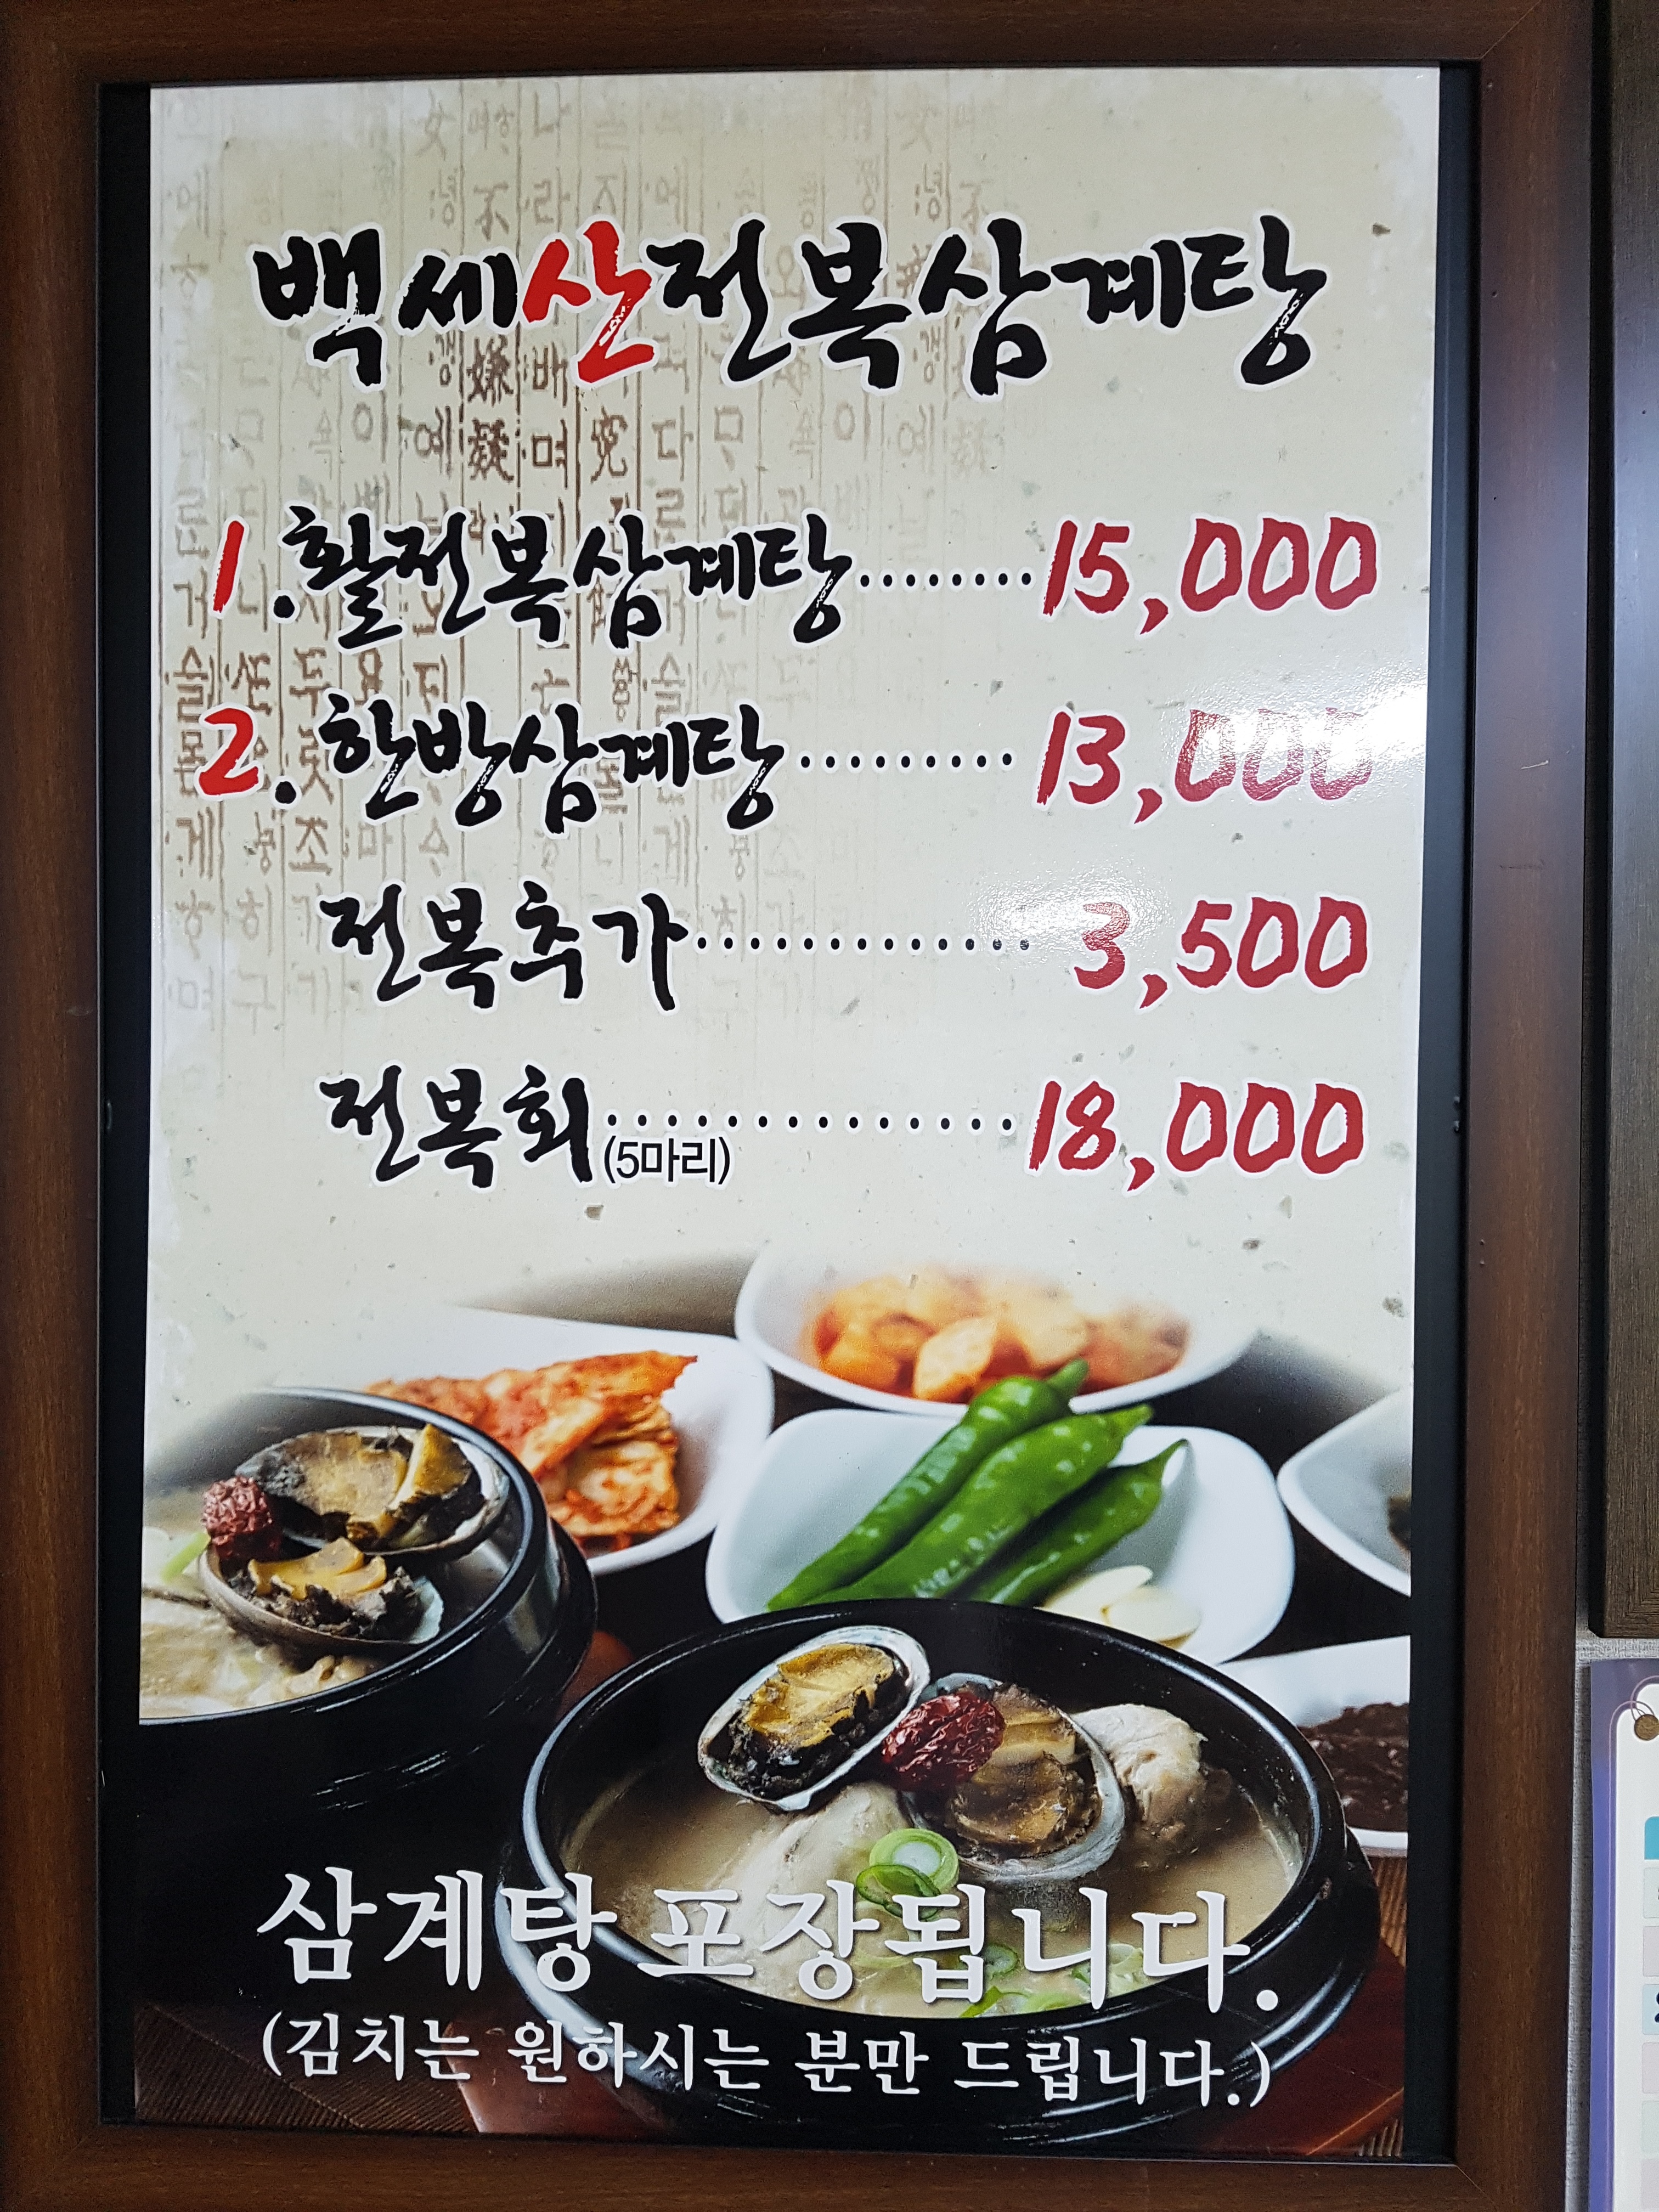 백세산전복삼계탕
1.활전복삼계탕........15,000
2.한방삼계탕.........13,000
전복추가.............3,500
전복회(5마리)..............18,000
삼계탕 포장됩니다.
(김치는 원하시는 분만 드립니다.)